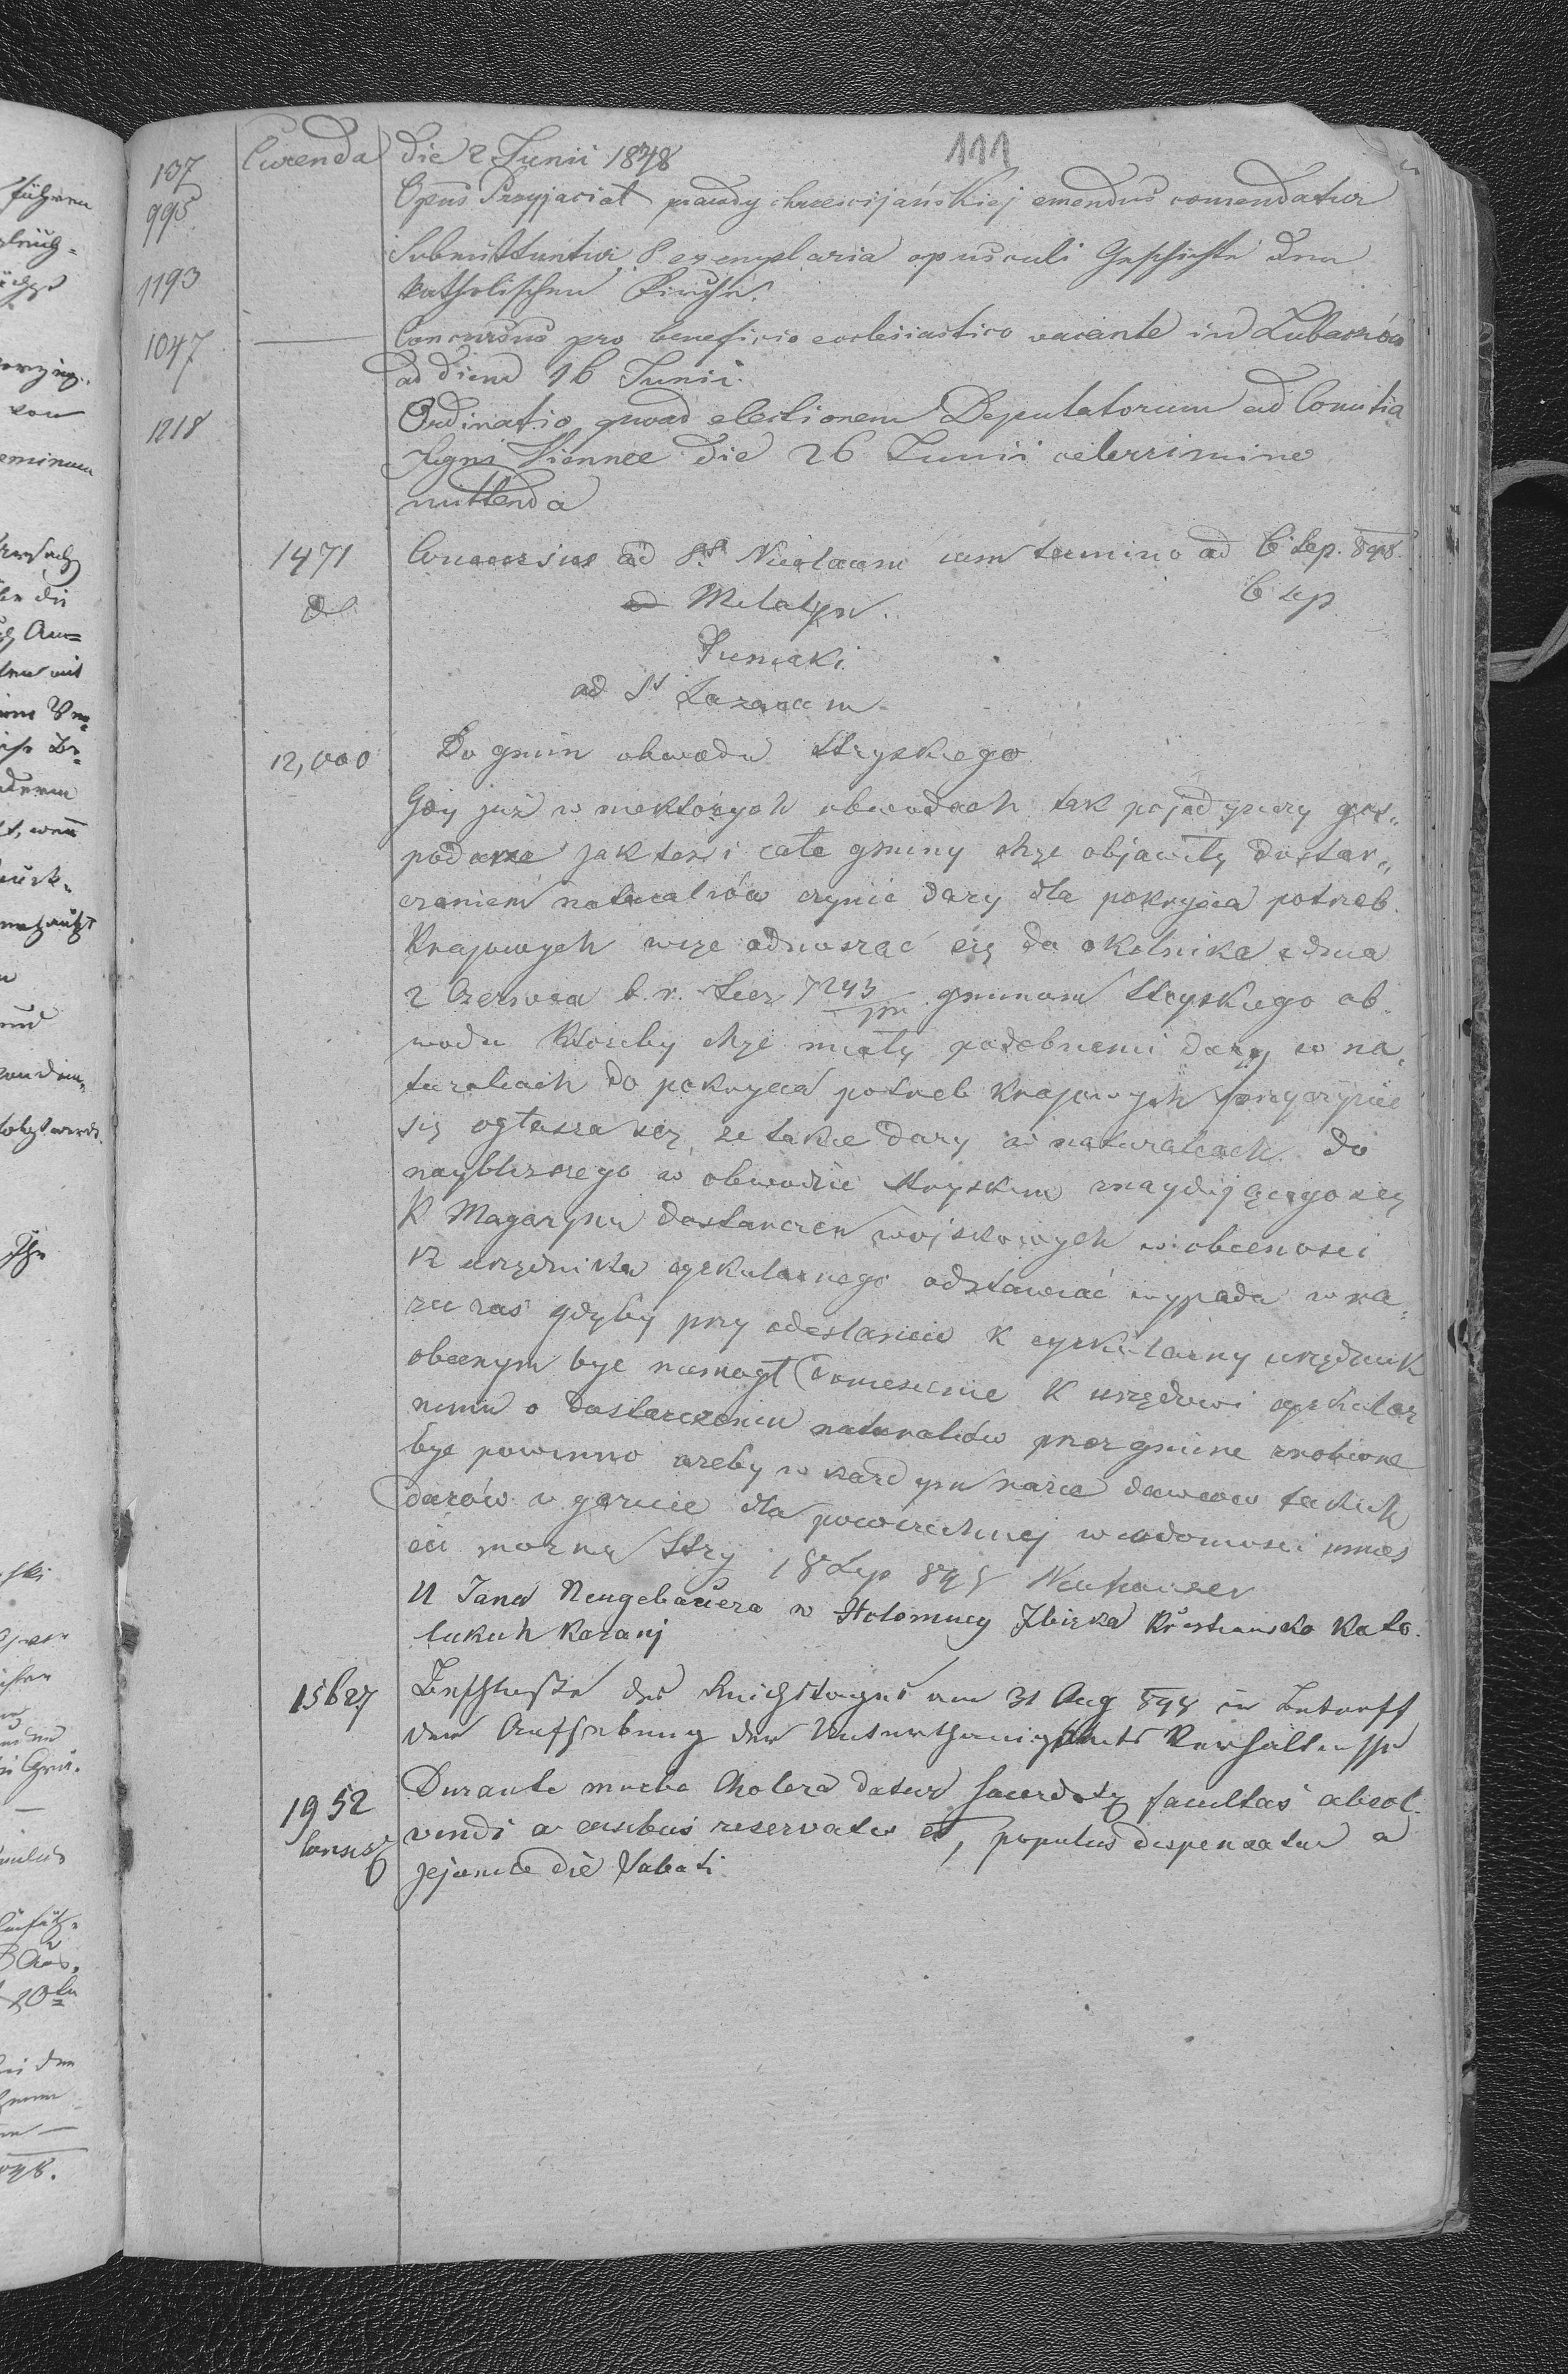 111
137 Curenda die 2 Junii 1848
995 Opus Przyjaciel prawdy chrześcijańskiej emendus comendatur
Submittuntur 8 exemplaria opusculi Geschichte der
1193 katholischen Kirche.
1047 Concursus pro beneficio ecclesiastico vacante in Lubaczów
ad diem 16 Junii.
1218 Ordinatio quoad electionem Deputatorum ad Comitia
Regni Viennae die 26 Junii celerrimine
mittenda
1471 Concursus ad St. Nicolaum cum termino ad 6 Sep. 848.
ad Milatyn. 6 Sep
Sieniaki
ad St Lazarum
12,000 Do gmin obwodu Stryskiego
Gdy już w niektórych obwodach tak pojedynczy gos„
podarze jak też i całe gminy chęć objawiły dostar„
czaniem naturaliów czynić dary dla pokrycia potrzeb
Krajowych więc odnosząć się do okolnika z dnia
2 Czerwca b. r. Licz 7243 gminom Stryskiego ob„
wodu któreby chęć miały podobnemi dary w na„
turaliach do pokrycia potrzeb krajowych przyczynić
się ogłasza się, że takie dary w naturaliach do
nayblizszego w obwodzie stryskim znaydującego się
K Magazynu dostarczeń wojskowych w obecnosci
K urzędnika cyrkularnego odstawiać wypada w ra„
zie zas gdyby przy odestaniu K cyrkularny urzędnik
obecnym byc niemogł Doniesienie K urzędowi cyrkular
nemu o dostarczeniu naturaliów przez gminę zrobione
byc powinno ażeby w każdym razie dawców takich
darów w gazecie dla powszechney wiadomosci umieś
cić można Stry 18 Lip 848 Neuhauser
U Jana Neugebauera w Hołomucy Zbirka Křestiansko Kato„
lickich Kazanj
15627 Beschlüsse des Reichstages vom 31 Aug 848 in Betreff
der Aufhebung der Unterthänigkeits Verhältnisse
1952 Durante morbo Cholera datur facultas absol„
Consis vendi a casibus reservatis et, populus dispensatur a
jejunio die Sabati